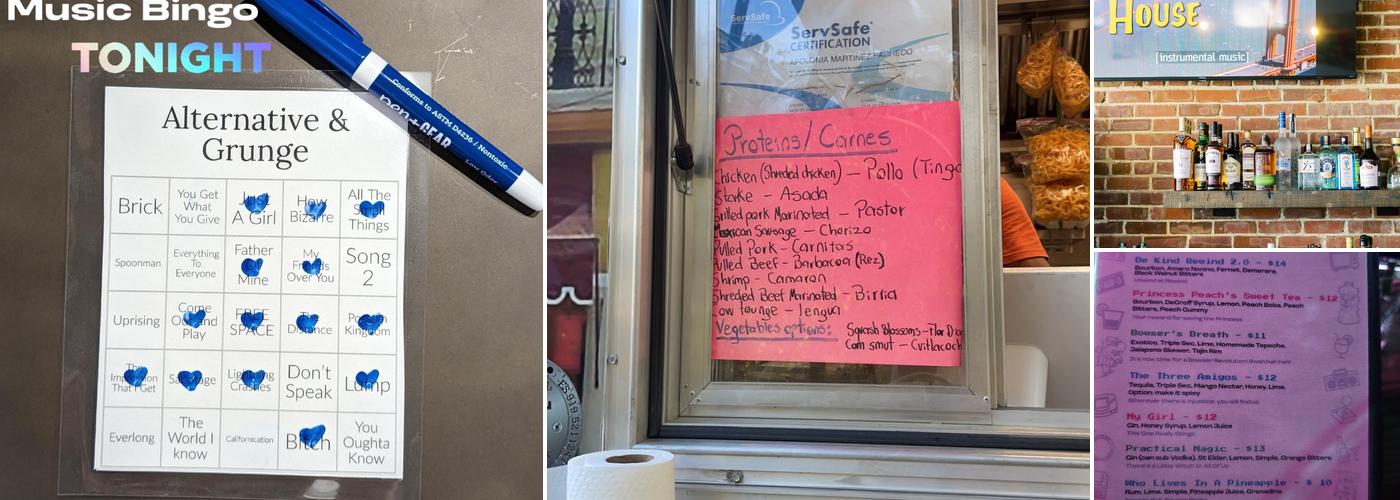 Music Bingo
TONIGHT
Conforms to ASTM D4236 / Nontoxic
pen+GEAR
Low Odor
Alternative &
Grunge
Brick
You Get
What
You Give
Just
A Girl
How
Bizarre
All The
Small
Things
Spoonman
Everything
To
Everyone
Father
Of
Mine
My
Friends
Over You
Song
2
Uprising
Come
Out and
Play
FREE
SPACE
The
Distance
Possum
Kingdom
The
Impression
That I Get
Sabotage
Lightning
Crashes
Don't
Speak
Lump
Everlong
The
World I
know
Californication
Bitch
You
Oughta
Know
ServSafe
ServSafe
CERTIFICATION
APOLONIA MARTINEZ PACHECO
Proteins/Carnes
Chicken (Shreded chicken) – Pollo (Tinga
Stake – Asada
Grilled pork Marinated – Pastor
Mexican Sausage – Chorizo
Pulled Pork – Carnitas
Pulled Beef – Barbacoa (Rez)
Shrimp – Camaron
Shreded Beef Marinated – Birria
Cow tounge – lengua
Vegetables options:
Squash Blossoms – Flor D
Corn smut – Cuitlacoch
HOUSE
[instrumental music]
Be Kind Rewind 2.0 - $14
Bourbon, Amaro Nonino, Fernet, Demerara,
Black Walnut Bitters
Unwind at Rewind
Princess Peach's Sweet Tea - $12
Bourbon, DeGroff Syrup, Lemon, Peach Boba, Peach
Bitters, Peach Gummy
Your reward for saving the Princess
Bowser's Breath - $11
Exotico, Triple Sec, Lime, Homemade Tepache,
Jalapeno Skewer, Tajin Rim
It's now time for a Bowser Revolution! Bwah hah hah!
The Three Amigos - $12
Tequila, Triple Sec, Mango Nectar, Honey, Lime.
Option: make it spicy
Wherever there is injustice, you will find us
My Girl - $12
Gin, Honey Syrup, Lemon Juice
This One Really Stings
Practical Magic - $13
Gin (can sub Vodka), St Elder, Lemon, Simple, Orange Bitters
There's a Little Witch In All Of Us
Who Lives In A Pineapple - $ 10
Rum, Lime, Simple, Pineapple Juice, Grenadine